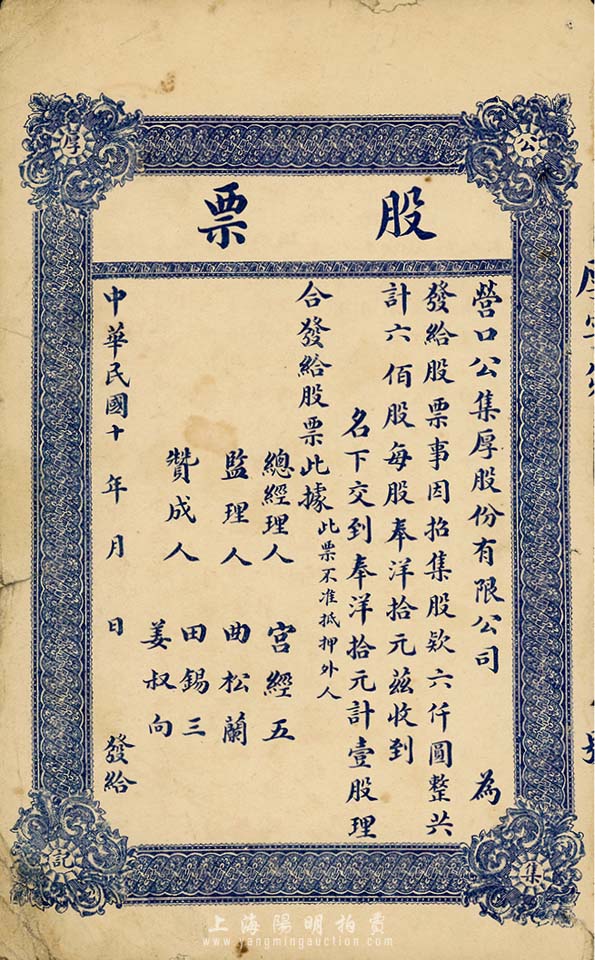 公
集
厚
記
股票
營口公集厚股份有限公司 為
發給股票事因招集股欵六仟圓整共
計六佰股每股奉洋拾元茲收到
名下交到奉洋拾元計壹股理
合發給股票此據 此票不准抵押外人
總經理人 宮經五
監理人 曲松蘭
贊成人 田錫三
姜叔向
中華民國十 年 月 日 發給
號
上海陽明拍賣
www.yangmingauction.com